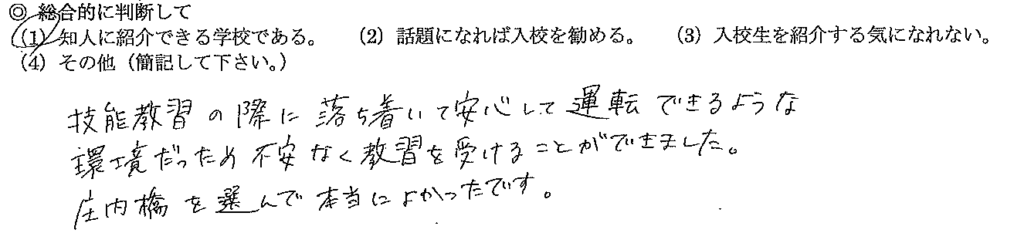 ◎ 総合的に判断して
(1) 知人に紹介できる学校である。 (2) 話題になれば入校を勧める。 (3) 入校生を紹介する気になれない。
(4) その他（簡記して下さい。）
技能教習の際に落ち着いて安心して運転できるような
環境だったため不安なく教習を受けることができました。
庄内橋を選んで本当によかったです。